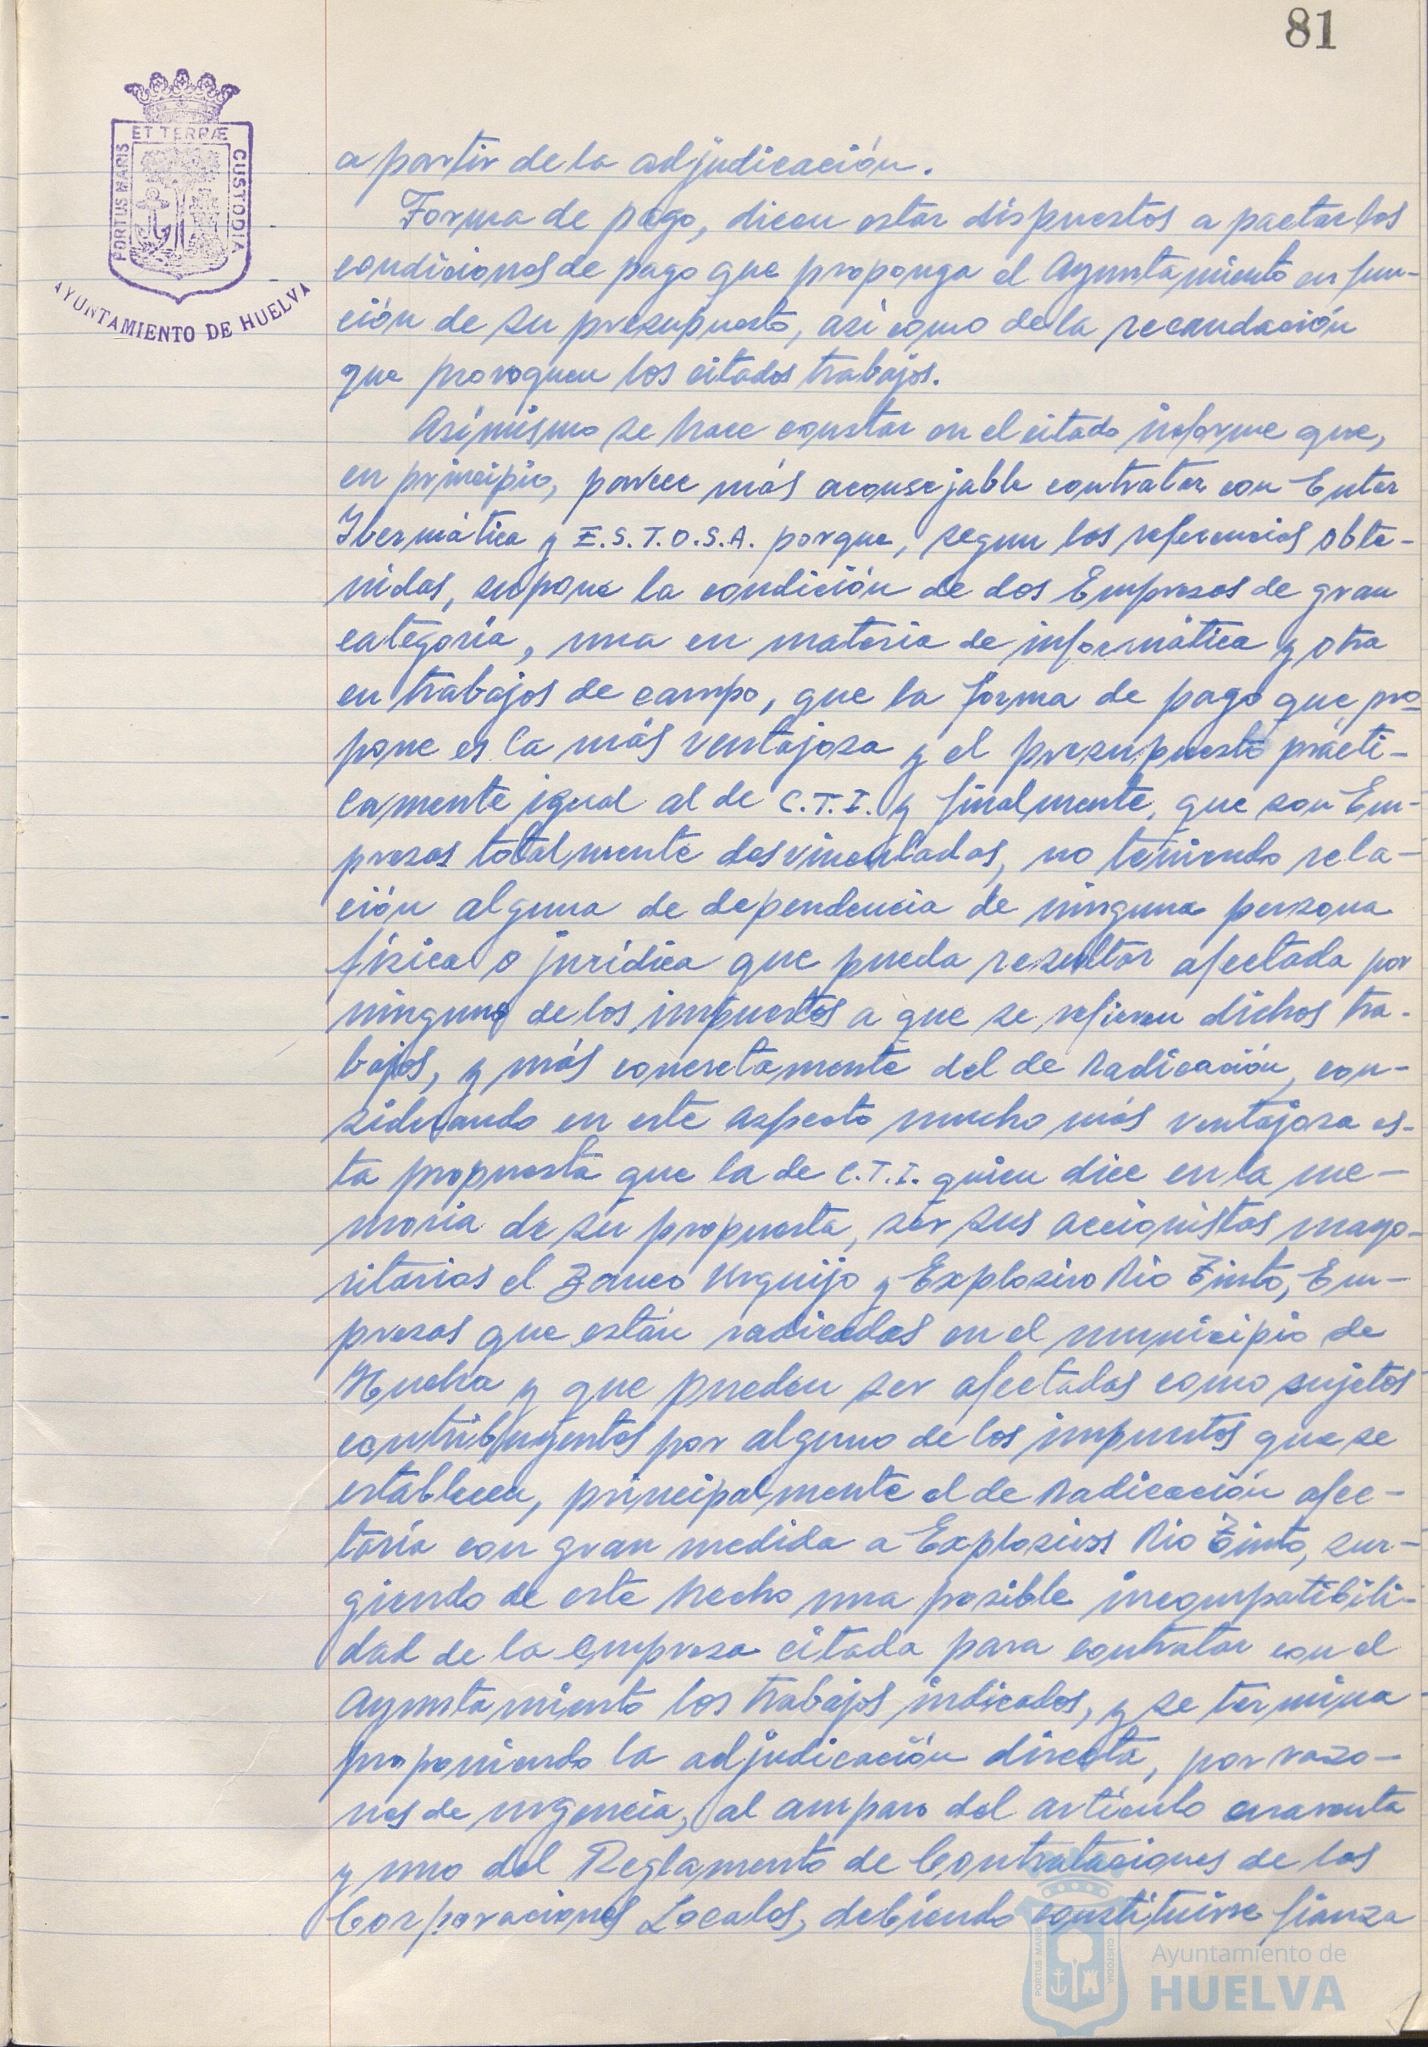 81
ET TERRÆ
PORTUS MARIS
CUSTODIA
AYUNTAMIENTO DE HUELVA
a partir de la adjudicación.
Forma de pago, dicen estar dispuestos a pactar las
condiciones de pago que proponga el Ayuntamiento en fun-
ción de su presupuesto, así como de la recaudación
que provoquen los citados trabajos.
Asímismo se hace constar en el citado informe que,
en principio, parece más aconsejable contratar con Enter
Ibermática y E.S.T.O.S.A. porque, segun las referencias obte-
nidas, supone la condición de dos Empresas de gran
categoría, una en materia de informática y otra
en trabajos de campo, que la forma de pago que pro-
pone es la más ventajosa y el presupuesto prácti-
camente igual al de C.T.I. y finalmente, que son Em-
presas totalmente desvinculadas, no teniendo rela-
ción alguna de dependencia de ninguna persona
física o jurídica que pueda resultar afectada por
ninguno de los impuestos a que se refieren dichos tra-
bajos, y más concretamente del de Radicación, con-
siderando en este aspecto mucho más ventajosa es-
ta propuesta que la de C.T.I. quien dice en la me-
moria de su propuesta, ser sus accionistas mayo-
ritarios el Banco Urquijo y Explosivo Rio Tinto, Em-
presas que están radicadas en el municipio de
Huelva y que pueden ser afectadas como sujetos
contribuyentes por alguno de los impuestos que se
establecen, principalmente el de Radicación afec-
taría con gran medida a Explosivos Rio Tinto, sur-
giendo de este hecho una posible incompatibili-
dad de la empresa citada para contratar con el
Ayuntamiento los trabajos indicados, y se termina
proponiendo la adjudicación directa, por razo-
nes de urgencia, al amparo del artículo cuarenta
y uno del Reglamento de Contrataciones de las
Corporaciones Locales, debiendo constituirse fianza
PORTUS MARIS
CUSTODIA
Ayuntamiento de
HUELVA